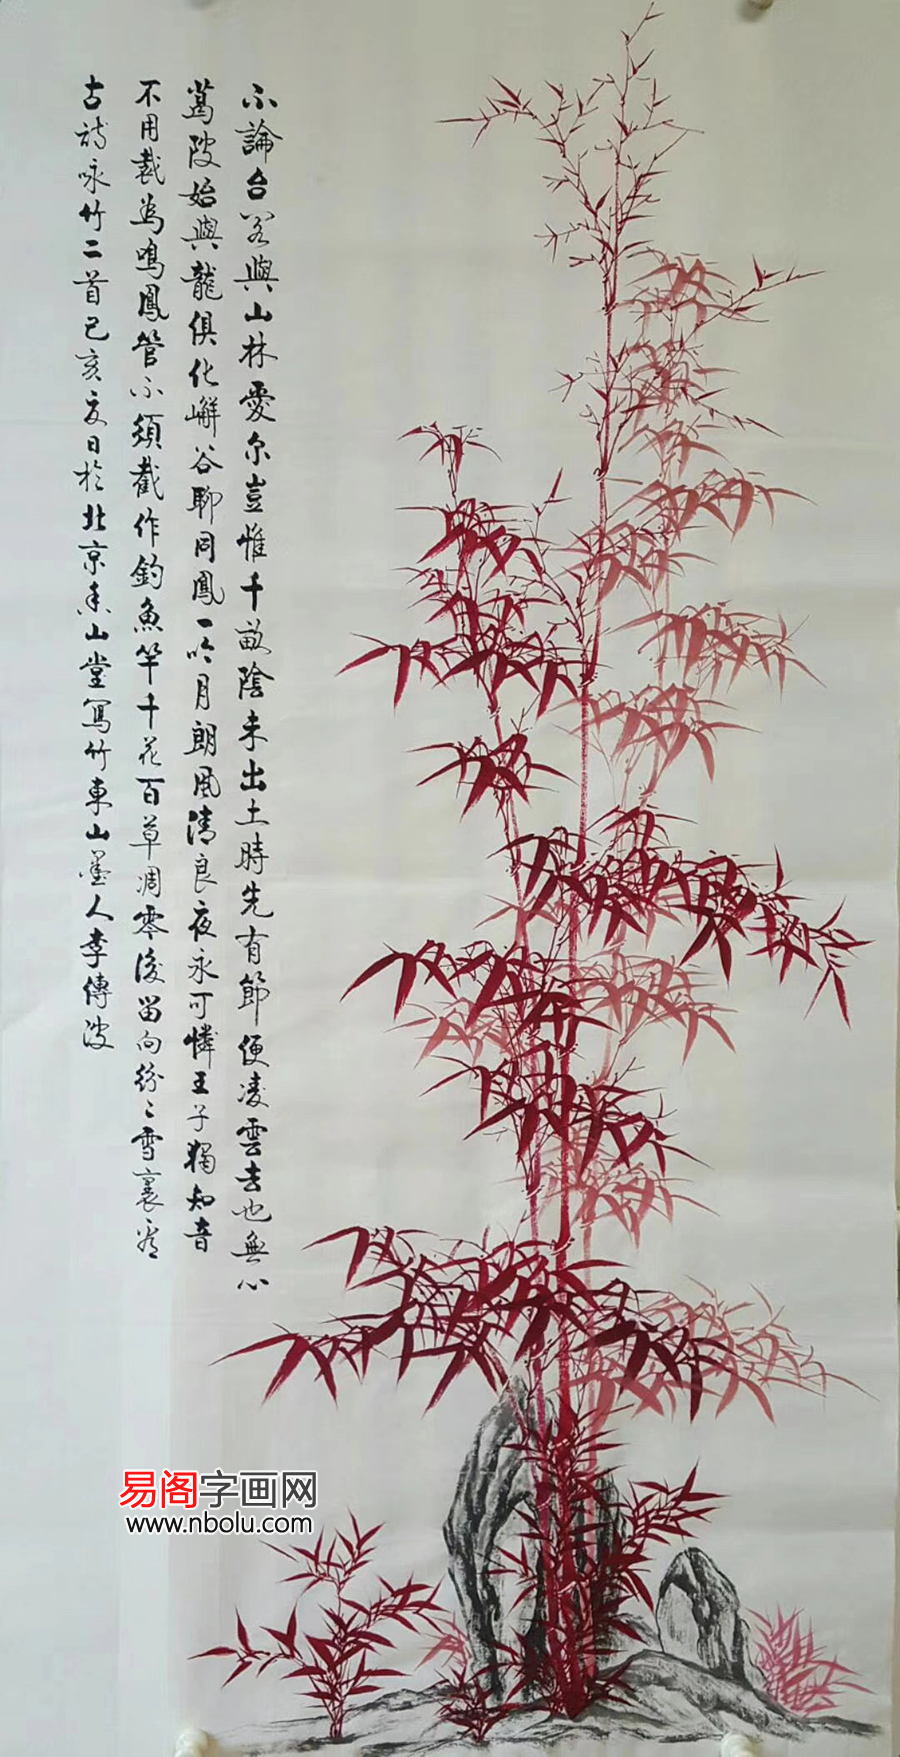 不論台閣與山林愛尔豈惟千畝陰未出土時先有節便凌雲去也無心
葛陂始與龍俱化嶰谷聊同鳳一吟月朗風清良夜永可憐王子獨知音
不用裁為鳴鳳管不須截作釣魚竿千花百草凋零後留向紛〻雪裏看
古詩咏竹二首己亥夏日於北京香山堂寫竹東山墨人李傳波
易阁字画网
www.nbolu.com